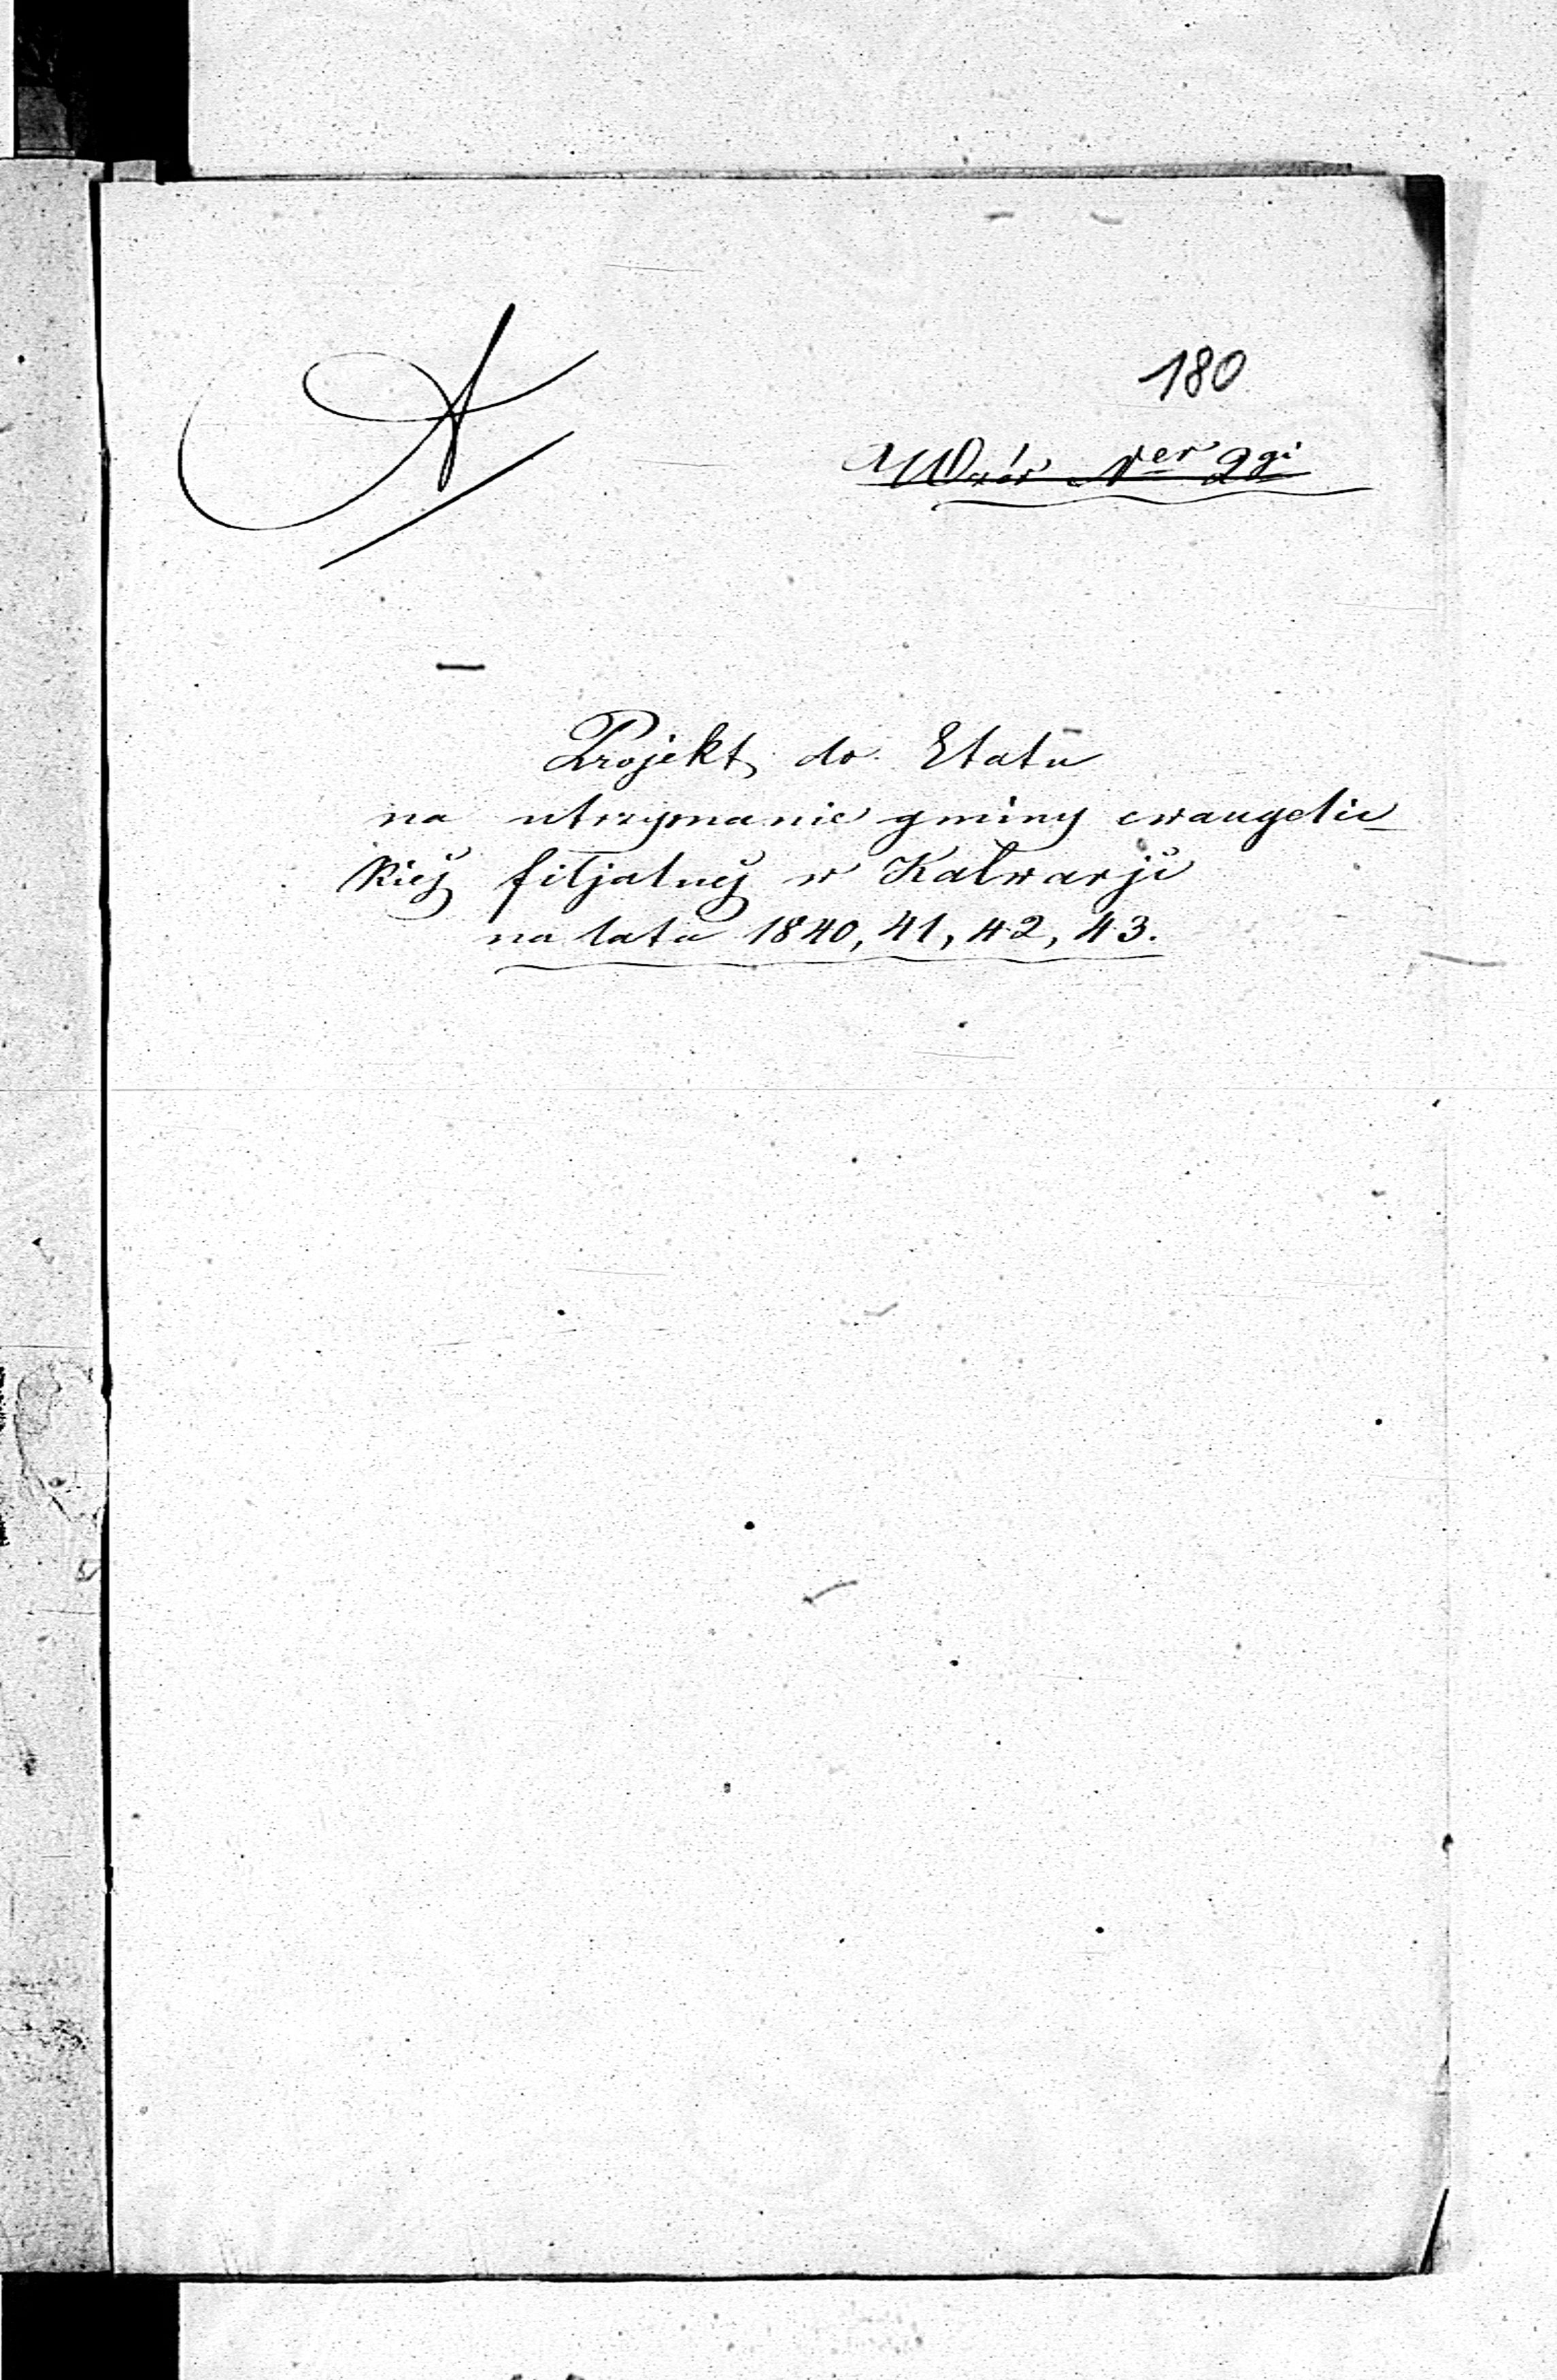 A
180
Wzór Ner 2gi
Projekt do Etatu
na utrzymanie gminy ewangelic-
kiéj filjalnéj w Kalwarji
na lata 1840, 41, 42, 43.